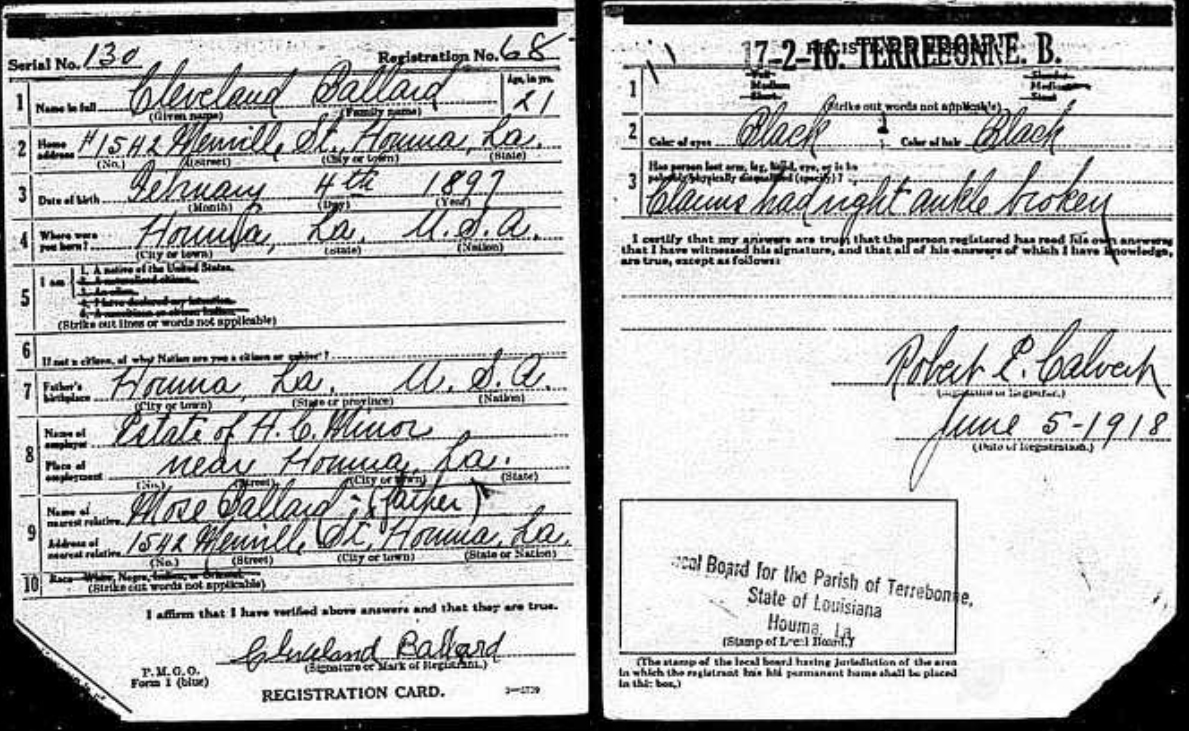 Serial No. 130 Registration No. 68
1 Name in full Cleveland Ballard Age, in yrs. 21
(Given name) (Family name)
2 Home address #1542 Merrill St., Houma, La.
(No.) (Street) (City or town) (State)
3 Date of birth February 4th 1897
(Month) (Day) (Year)
4 Where were you born? Houma, La. U.S.A.
(City or town) (State) (Nation)
5 I am 1. A native of the United States.
2. A naturalized citizen.
3. An alien.
4. I have declared my intention.
5. A noncitizen or citizen Indian.
(Strike out lines or words not applicable)
6 If not a citizen, of what Nation are you a citizen or subject?
7 Father's birthplace Houma, La. U.S.A.
(City or town) (State or province) (Nation)
8 Name of employer Estate of H. C. Minor
Place of employment near Houma, La.
(No.) (Street) (City or town) (State)
9 Name of nearest relative Mose Ballard - (father)
Address of nearest relative 1542 Merrill St, Houma, La.
(No.) (Street) (City or town) (State or Nation)
10 Race—White, Negro, Indian, or Oriental.
(Strike out words not applicable)
I affirm that I have verified above answers and that they are true.
Cleveland Ballard
(Signature or Mark of Registrant.)
P. M. G. O.
Form 1 (blue)
REGISTRATION CARD.
17-2-16. TERREBONNE. B.
1 Tall Medium Short Slender Medium Stout
(Strike out words not applicable)
2 Color of eyes Black Color of hair Black
3 Has person lost arm, leg, hand, eye, or is he
palpably physically disqualified (specify)?
Claims had right ankle broken
I certify that my answers are true, that the person registered has read his own answers,
that I have witnessed his signature, and that all of his answers of which I have knowledge,
are true, except as follows:
Robert P. Calvert
(Signature of Registrar.)
June 5-1918
(Date of Registration.)
Local Board for the Parish of Terrebonne,
State of Louisiana
Houma, La.
(Stamp of Local Board.)
(The stamp of the local board having jurisdiction of the area
in which the registrant has his permanent home shall be placed
in this box.)